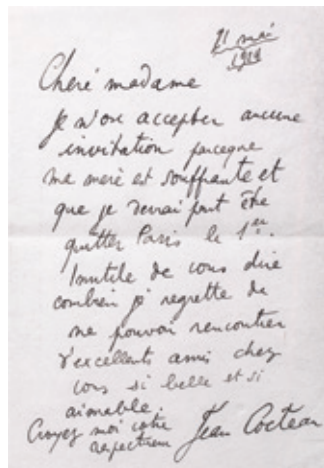 21 mai
Chère madame
Je n'ose accepter aucune
invitation parceque
ma mère est souffrante et
que je devrai peut être
quitter Paris le 1er.
Inutile de vous dire
combien je regrette de
ne pouvoir rencontrer
d'excellents amis chez
vous si belle et si
aimable.
Croyez moi votre
respectueux
Jean Cocteau